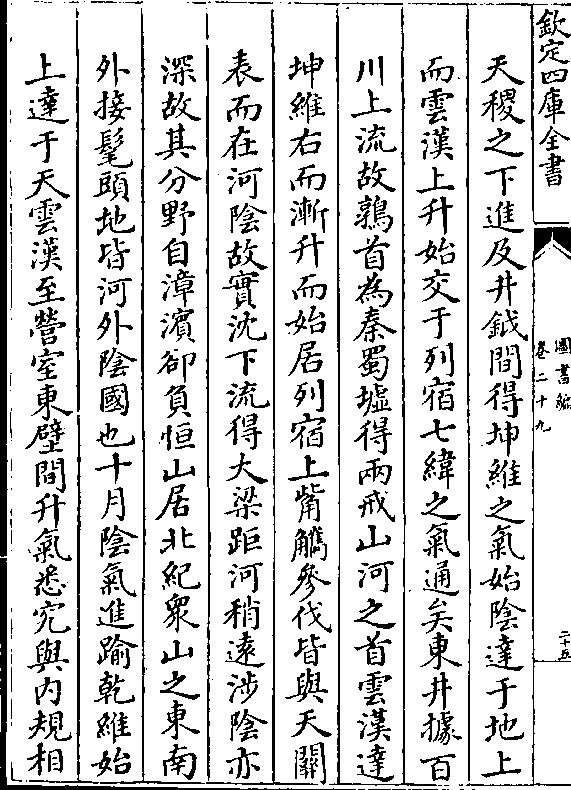 欽定四庫全書
圖書編
卷二十九
二十五
天稷之下進及井鉞間得坤維之氣始陰達于地上
而雲漢上升始交于列宿七緯之氣通矣東井據百
川上流故鶉首為秦蜀墟得兩戒山河之首雲漢達
坤維右而漸升而始居列宿上觜觿參伐皆與天關
表而在河陰故實沈下流得大梁距河稍遠涉陰亦
深故其分野自漳濱卻負恒山居北紀衆山之東南
外接髦頭地皆河外陰國也十月陰氣進踰乾維始
上達于天雲漢至營室東壁間升氣悉究與内規相